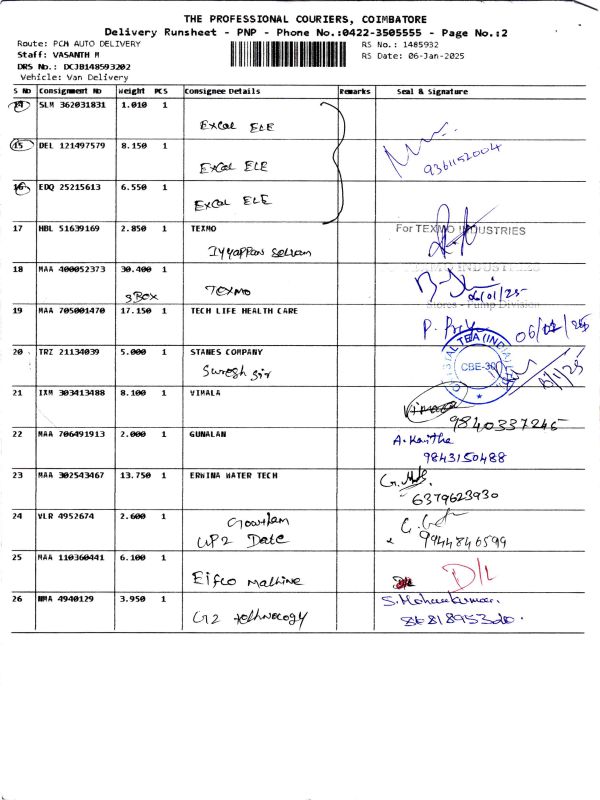 THE PROFESSIONAL COURIERS, COIMBATORE
Delivery Runsheet - PNP - Phone No.:0422-3505555 - Page No.:2
Route: PCM AUTO DELIVERY
RS No.: 1485932
Staff: VASANTH M
RS Date: 06-Jan-2025
DRS No.: DCJB148593202
Vehicle: Van Delivery
S No Consignment No Weight PCS Consignee Details Remarks Seal & Signature
14 SLM 362031831 1.010 1
Excel ELE
15 DEL 121497579 8.150 1
9361152004
Excel ELE
16 EDQ 25215613 6.550 1
Excel ELE
17 HBL 51639169 2.850 1 TEXMO
For TEXMO INDUSTRIES
Iyyappan Selvam
18 MAA 400052373 30.400 1
3 BOX TEXMO 06/01/25
Stores - Pump Division
19 MAA 705001470 17.150 1 TECH LIFE HEALTH CARE
20 TRZ 21134039 5.000 1 STANES COMPANY
CBE-30
Suresh Sir
21 IXM 303413488 8.100 1 VIMALA
Vimala
9840337245
22 MAA 706491913 2.000 1 GUNALAN
A. Kavitha
9843150488
23 MAA 302543467 13.750 1 ERWINA WATER TECH
6379623930
24 VLR 4952674 2.600 1
Gowtham
UP2 Date
9944846599
25 MAA 110360441 6.100 1
D/L
Eifco Machine
26 NMA 4940129 3.950 1
S. Mohankumar.
G2 technology
8681895320.